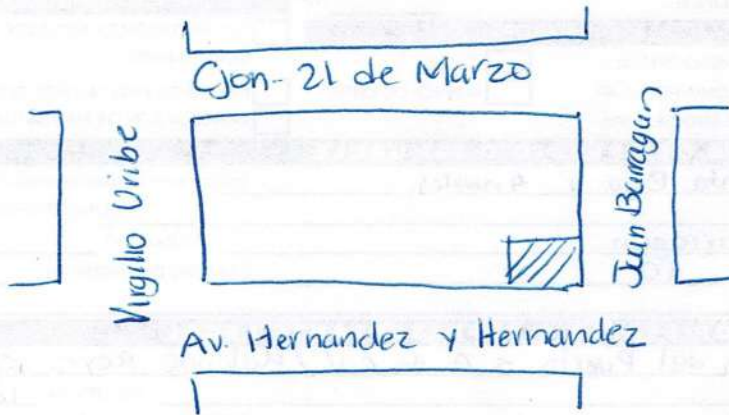 Cjon- 21 de Marzo
Virgilio Uribe
Juan Barragan
Av. Hernandez y Hernandez